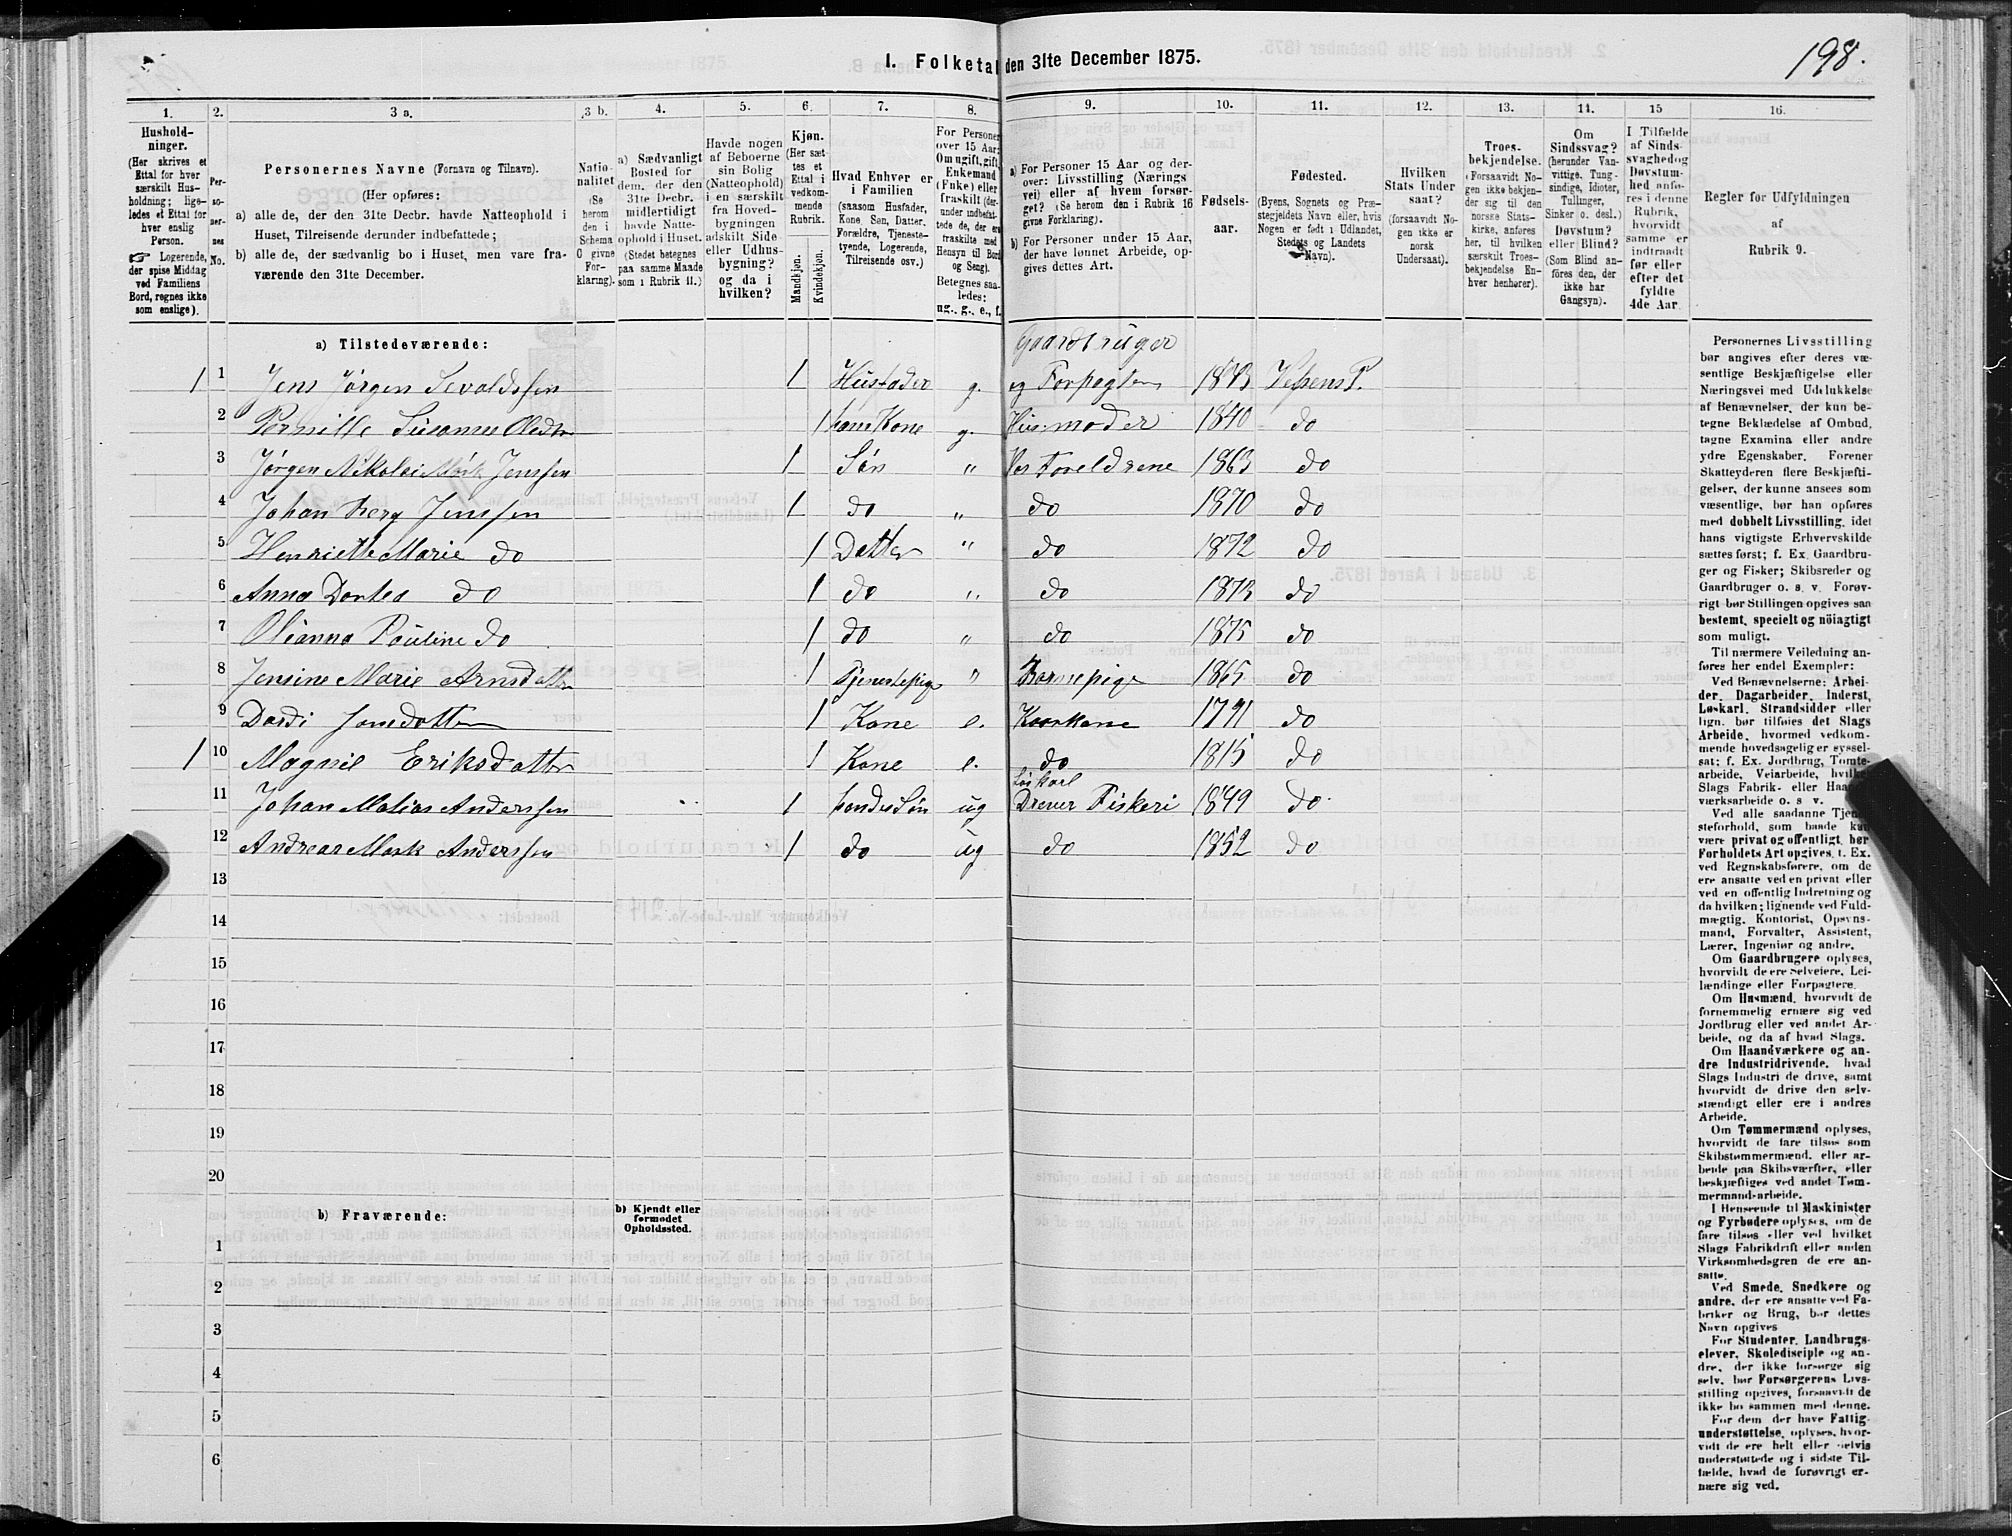 1. Folketal den 31te December 1875.
198.
1.
Hushold-
ninger.
(Her skrives et
Ettal for hver
særskilt Hus-
holdning; lige-
ledes et Ettal for
hver enslig
Person.
☞ Logerende,
der spise Middag
ved Familiens
Bord, regnes ikke
som enslige).
2.
Per-
so-
ner-
nes
No.
3 a.
Personernes Navne (Fornavn og Tilnavn).
(Her opføres:
a) alle de, der den 31te Decbr. havde Natteophold i
Huset, Tilreisende derunder indbefattede;
b) alle de, der sædvanlig bo i Huset, men vare fra-
værende den 31te December.
3 b.
Natio-
nalitet
(Se
herom
den i
Schema
C givne
For-
klaring).
4.
a) Sædvanligt
Bosted for
dem, der den
31te Decbr.
midlertidigt
havde Natte-
ophold i Huset.
(Stedet betegnes
paa samme Maade
som i Rubrik 11.)
5.
Havde nogen
af Beboerne
sin Bolig
(Natteophold)
i en særskilt
fra Hoved-
bygningen
adskilt Side-
eller Udhus-
bygning?
og da i
hvilken?
6.
Kjøn.
(Her sæt-
tes et
Ettal i
vedkom-
mende
Rubrik.
Mandkjøn.
Kvindekjøn.
7.
Hvad Enhver er
i Familien
(saasom Husfader,
Kone, Søn, Datter,
Forældre, Tjeneste-
tyende, Logerende,
Tilreisende osv.)
8.
For Personer
over 15 Aar:
Om ugift, gift,
Enkemand
(Enke) eller
fraskilt (der-
under indbefat-
tede de, der ere
fraskilte med
Hensyn til Bord
og Seng).
Betegnes saa-
ledes:
ug., g., e., f.
9.
a) For Personer 15 Aar og der-
over: Livsstilling (Nærings-
vei) eller af hvem forsør-
get? (Se herom den i Rubrik 16
givne Forklaring).
b) For Personer under 15 Aar,
der have lønnet Arbeide, op-
gives dettes Art.
10.
Fødsels-
aar.
11.
Fødested.
(Byens, Sognets og Præ-
stegjeldets Navn eller, hvis
Nogen er født i Udlandet,
Stedets og Landets
Navn).
12.
Hvilken
Stats Under-
saat?
(forsaavidt No-
gen ikke er
norsk
Undersaat).
13.
Troes-
bekjendelse.
(Forsaavidt No-
gen ikke bekjen-
der sig til den
norske Stats-
kirke, anføres
her, til hvilken
særskilt Troes-
bekjendelse En-
hver henhører).
14.
Om
Sindssvag?
(herunder Van-
vittige, Tung-
sindige, Idioter,
Tullinger,
Sinker o. desl.)
Døvstum?
eller Blind?
(Som Blind an-
føres den, der
ikke har
Gangsyn).
15
I Tilfælde
af Sinds-
svaghed og
Døvstum-
hed anfø-
res i denne
Rubrik,
hvorvidt
samme er
indtraadt
før eller
efter det
fyldte
4de Aar.
16.
Regler for Udfyldningen
af
Rubrik 9.
a) Tilstedeværende:
Gaardbruger
1 1 Jens Jørgen Sevaldssen 1 Husfader g. og Forpagter 1843 Vefsens P.
2 Pernille Susanne Olsdtr 1 hans Kone g. Husmoder 1840 do
3 Jørgen Nikolai Mørk Jenssen 1 Søn " Hos Foreldrene 1863 do
4 Johan Berg Jenssen 1 do " do 1870 do
5 Henriette Marie do 1 Datter " do 1872 do
6 Anna Dortea do 1 do " do 1873 do
7 Olianna Pauline do 1 do " do 1875 do
8 Jensine Marie Arnsdatter 1 Tjenestepige " Barnepige 1865 do
9 Dordi Jonsdatter 1 Kone e. Kaarkone 1791 do
1 10 Magnil Eriksdatter 1 Kone e. do 1815 do
Løskarl
11 Johan Matias Anderssen 1 hendes Søn ug Drever Fiskeri 1849 do
12 Andreas Mork Anderssen 1 do ug do 1852 do
13
14
15
16
17
18
19
20
b) Fraværende:
b) Kjendt eller
formodet
Opholdssted.
1
2
3
4
5
6
Personernes Livsstilling
bør angives efter deres væ-
sentlige Beskjæftigelse eller
Næringsvei med Udelukkelse
af Benævnelser, der kun be-
tegne Beklædelse af Ombud,
tagne Examina eller andre
ydre Egenskaber. Forener
Skatteyderen flere Beskjæfti-
gelser, der kunne ansees som
væsentlige, bør han opføres
med dobbelt Livsstilling, idet
hans vigtigste Erhvervskilde
sættes først; f. Ex. Gaardbru-
ger og Fisker; Skibsreder og
Gaardbruger o. s. v. Forøv-
rigt bør Stillingen opgives saa
bestemt, specielt og nöiagtigt
som muligt.
Til nærmere Veiledning an-
føres her endel Exempler:
Ved Benævnelserne: Arbei-
der, Dagarbeider, Inderst,
Løskarl, Strandsidder eller
lign. bør tilføies det Slags
Arbeide, hvormed vedkom-
mende hovedsagelig er syssel-
sat; f. Ex. Jordbrug, Tomte-
arbeide, Veiarbeide, hvilket
Slags Fabrik- eller Haand-
værksarbeide o. s. v.
Ved alle saadanne Tjene-
steforhold, som baade kan
være privat og offentligt, bør
Forholdets Art opgives, f. Ex.
ved Regnskabsførere, om de
ere ansatte ved en privat eller
ved en offentlig Indretning og
da hvilken; lignende ved Fuld-
mægtig, Kontorist, Opsyns-
mand, Forvalter, Assistent,
Lærer, Ingeniør og andre.
Om Gaardbrugere oplyses,
hvorvidt de ere Selveiere, Lei-
lændinge eller Forpagtere.
Om Husmænd, hvorvidt de
fornemmelig ernære sig ved
Jordbrug eller ved andet Ar-
beide, og da af hvad Slags.
Om Haandværkere og an-
dre Industridrivende, hvad
Slags Industri de drive, samt
hvorvidt de drive den selv-
stændigt eller ere i andres
Arbeide.
Om Tømmermænd oplyses,
hvorvidt de fare tilsøs som
Skibstømmermænd, eller ar-
beide paa Skibsværfter, eller
beskjæftiges ved andet Tøm-
mermandsarbeide.
I Henseende til Maskinister
og Fyrbødere oplyses, om de
fare tilsøs eller ved hvilket
Slags Fabrikdrift eller anden
Virksomhedsgren de ere an-
satte.
Ved Smede, Snedkere og
andre, der ere ansatte ved Fa-
briker og Brug, bør dettes
Navn opgives
For Studenter, Landbrugs-
elever, Skoledisciple og an-
dre, der ikke forsørge sig
selv, bør Forsørgerens Livs-
stilling opgives, forsaavidt de
ikke bo sammen med denne.
For dem, der have Fattig-
understøttelse, oplyses, hvor-
vidt de ere helt eller delvis
understøttede og i sidste Til-
fælde, hvad de forøvrigt er-
nære sig ved.